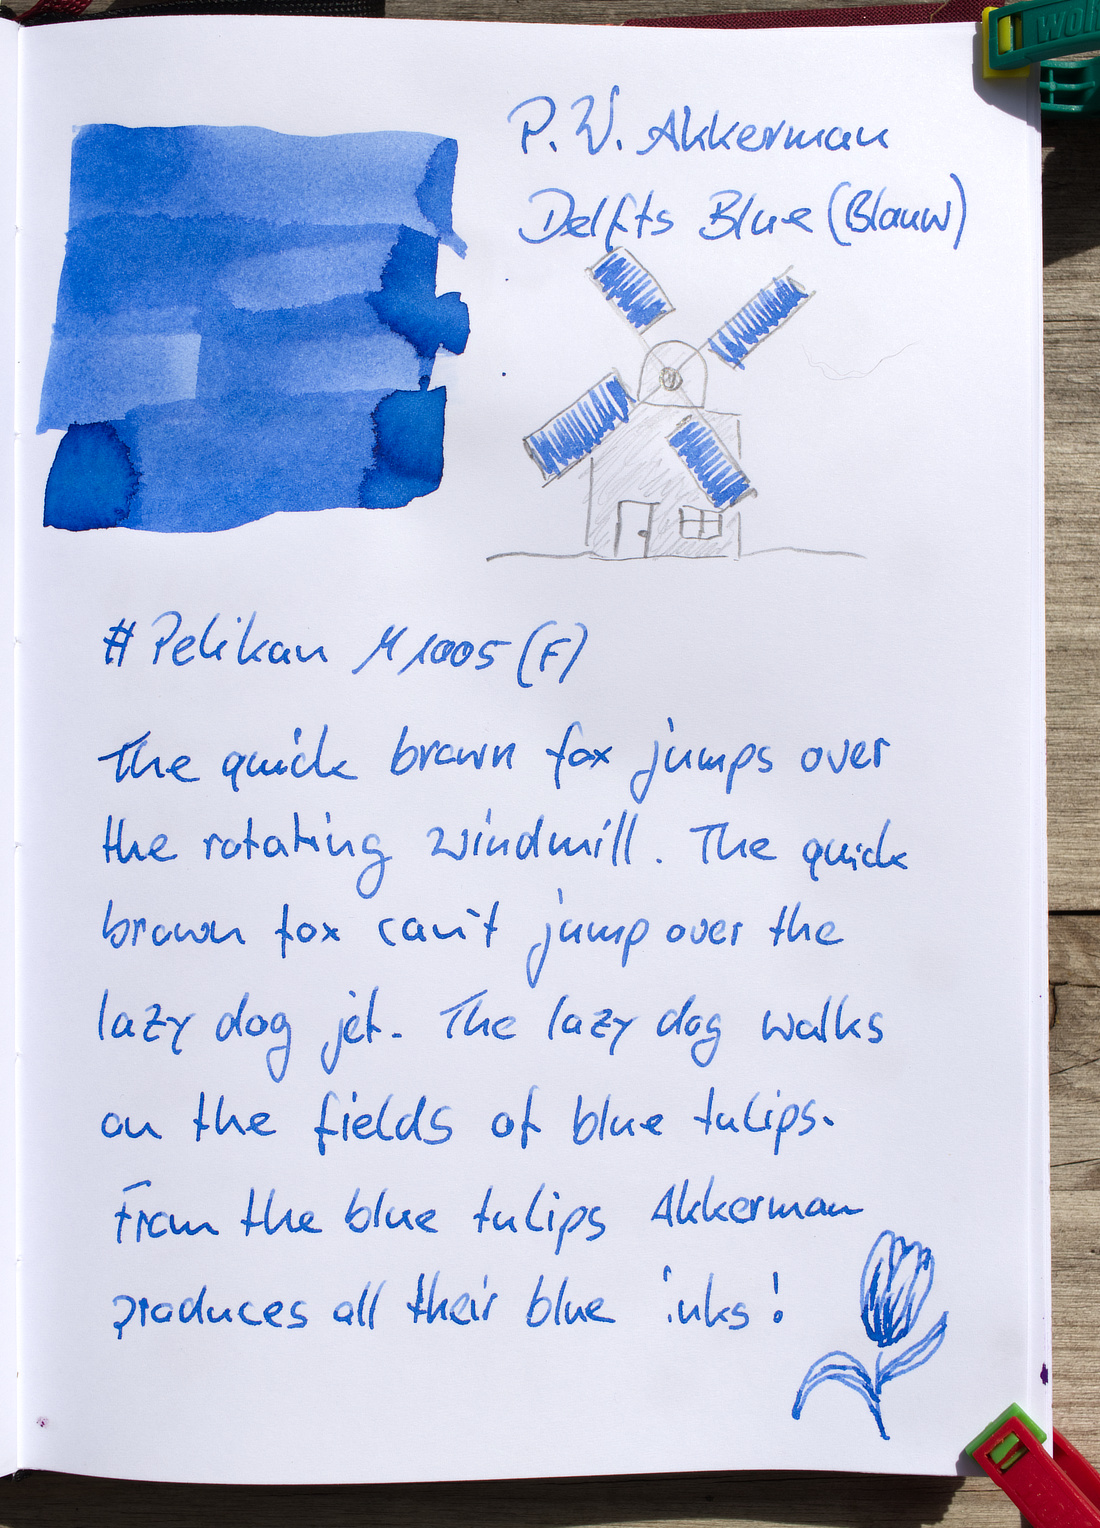 P. W. Akkerman
Delfts Blue (Blauw)
# Pelikan M1005 (F)
The quick brown fox jumps over
the rotating windmill. The quick
brown fox can't jump over the
lazy dog jet. The lazy dog walks
on the fields of blue tulips.
From the blue tulips Akkerman
produces all their blue inks!